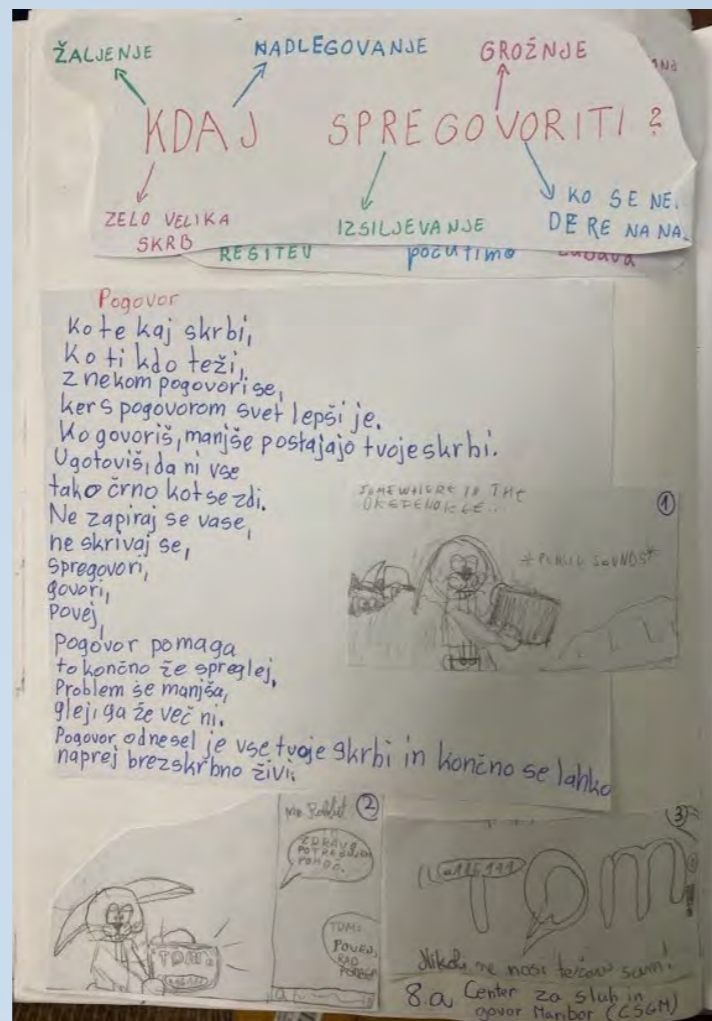 ŽALJENJE
NADLEGOVANJE
GROŽNJE
KDAJ SPREGOVORITI?
ZELO VELIKA
SKRB
IZSILJEVANJE
KO SE NE
DERE NA NA
REŠITEV počutimo zabava
Pogovor
Ko te kaj skrbi,
Ko ti kdo teži,
z nekom pogovori se,
ker s pogovorom svet lepši je.
Ko govoriš, manjše postajajo tvoje skrbi.
Ugotoviš, da ni vse
tako črno kot se zdi.
Ne zapiraj se vase,
ne skrivaj se,
spregovori,
govori,
povej,
Pogovor pomaga
to končno že sprevlej.
Problem se manjša,
glej, ga že več ni.
Pogovor odnesel je vse tvoje skrbi in končno se lahko
naprej brezskrbno živi.
SOMEWHERE IN THE
1
SOUNDS*
2
Mr. Rabbit
ZDRAVO
POTREBUJEM
POMOČ.
TOM:
POVEJ,
RAD
TOM
3
116 111
TOM
Nikoli ne nosi težav sam!
8.a Center za sluh in
govor Maribor (CSGM)